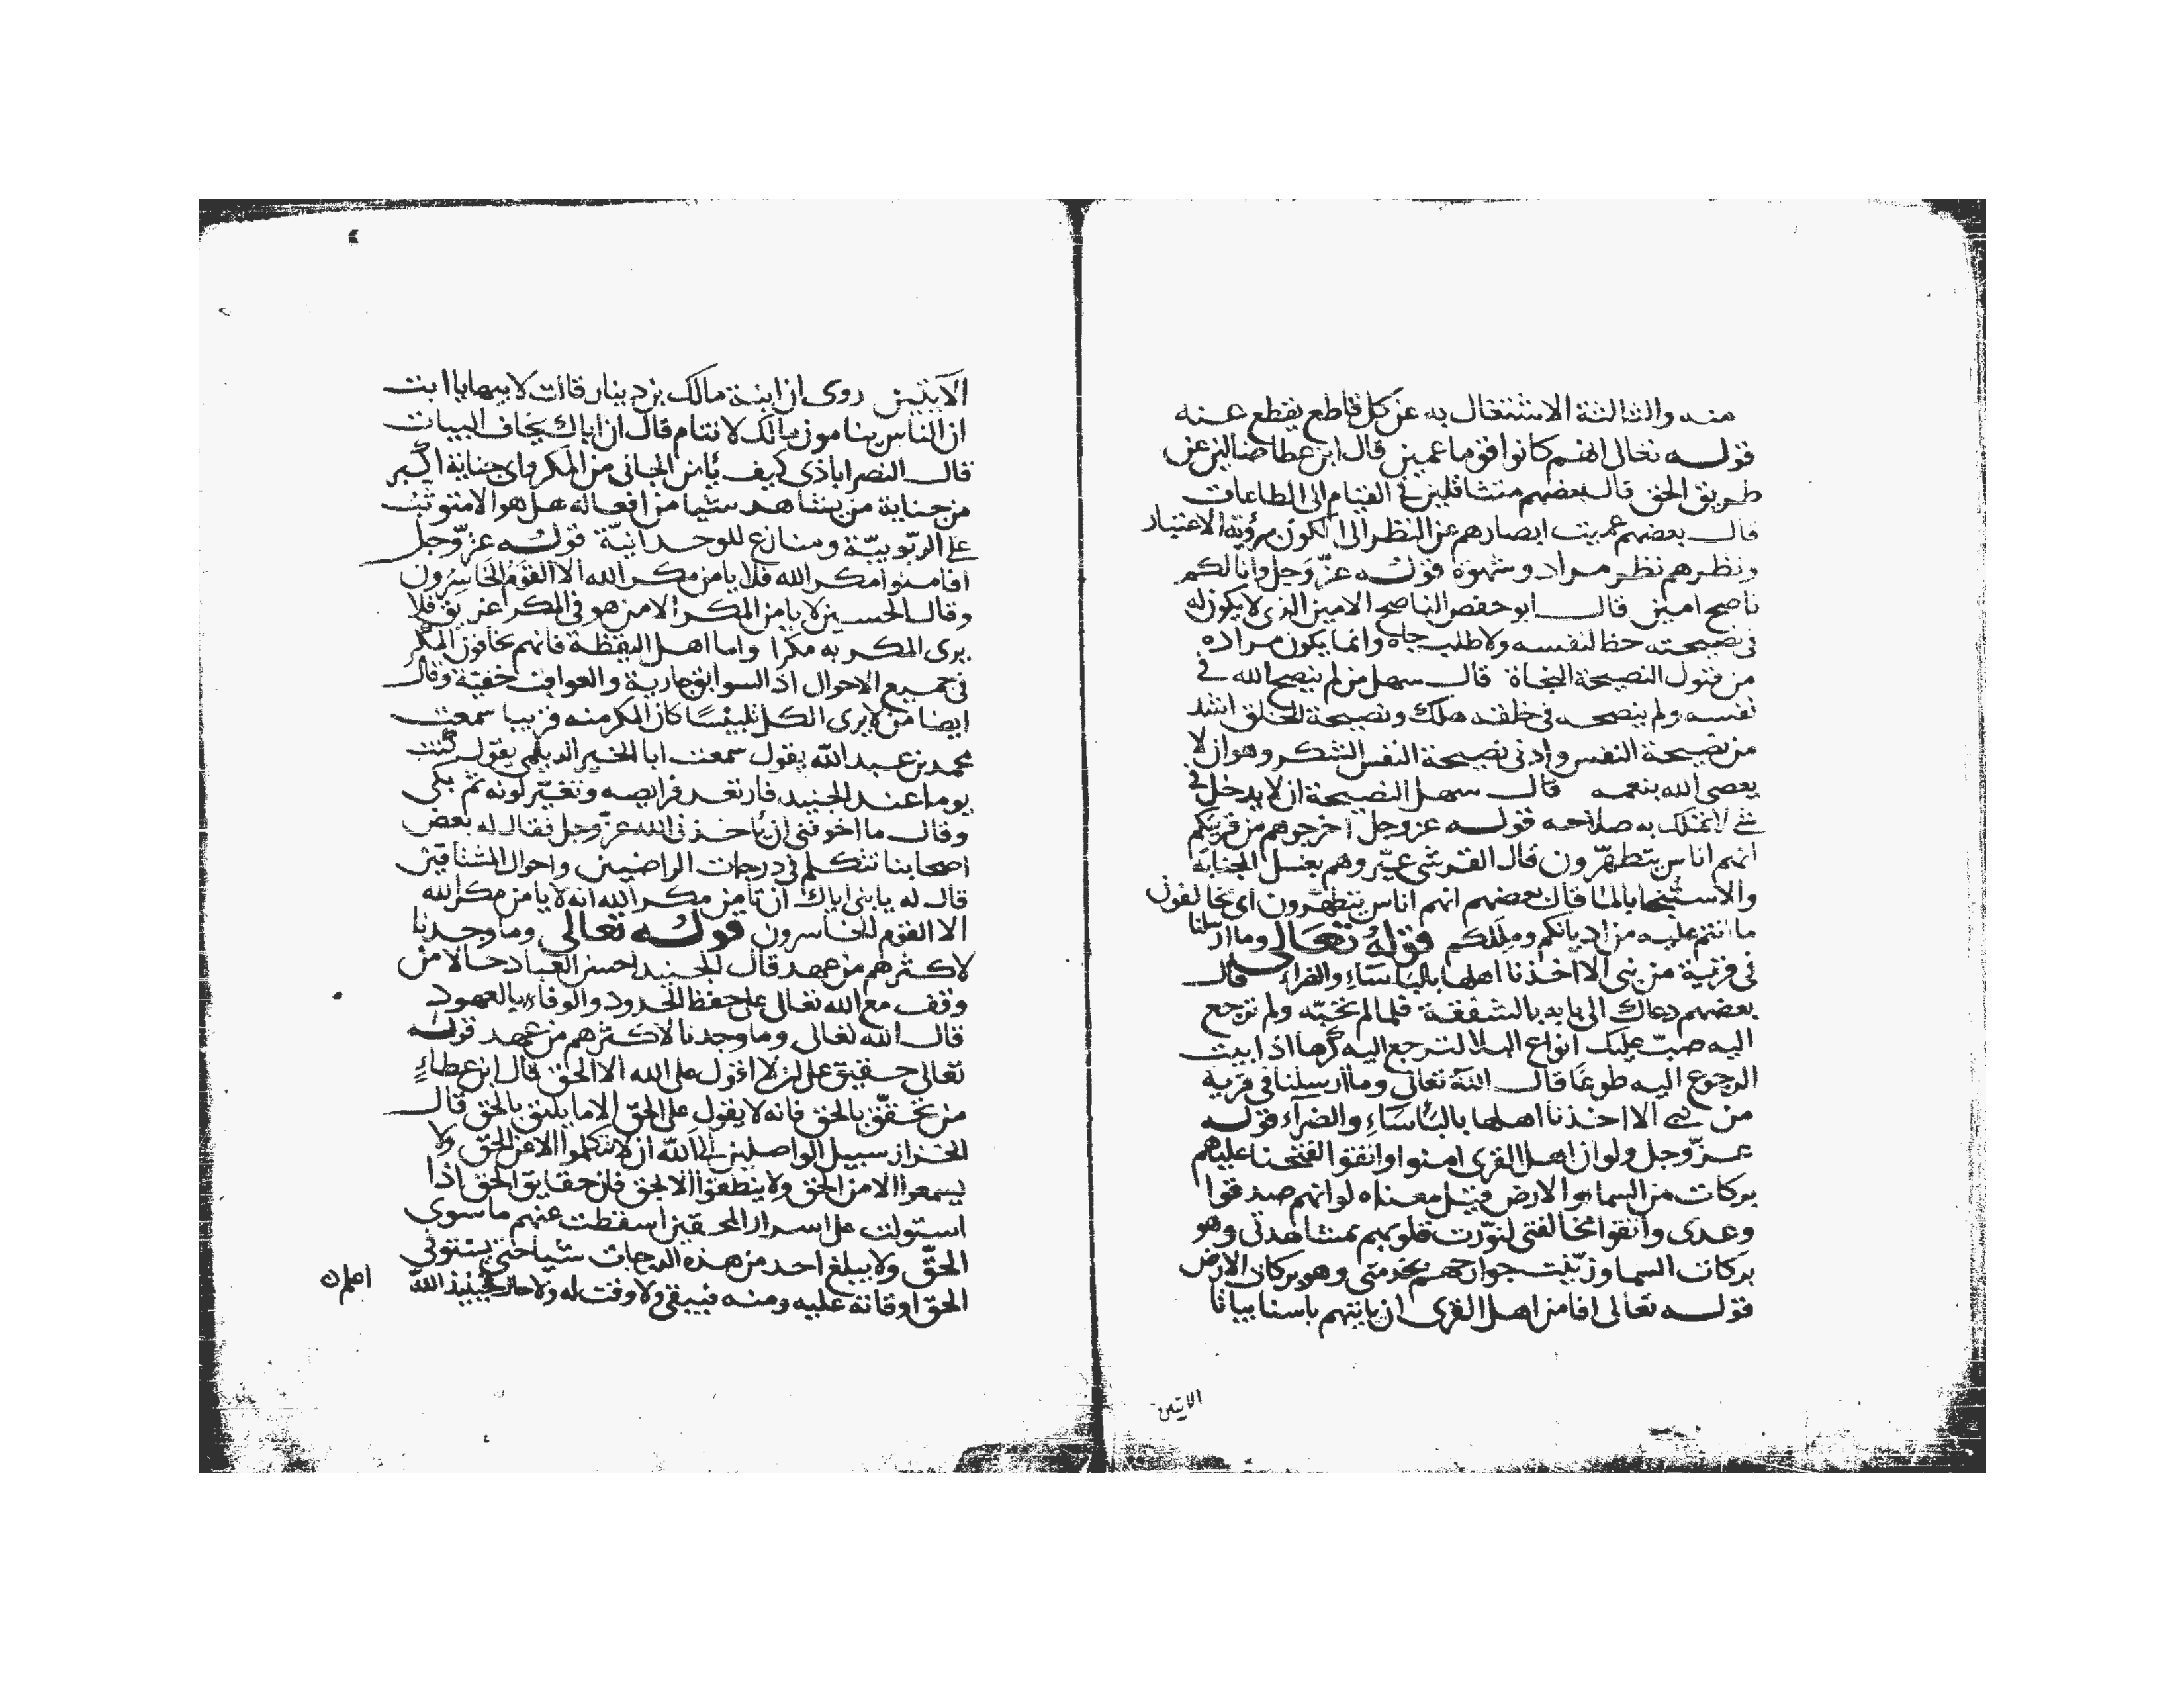 منه والثالثة الاشتغال به عن كل قاطع يقطع عنه
قوله تعالى انهم كانوا قوما عمين قال ابن عطا ضالين عن
طريق الحق قال بعضهم متثاقلين في القيام الى الطاعات
قال بعضهم عميت ابصارهم عن النظر الى الكون برؤية الاعتبار
ونظرهم نظر مراد وشهوة قوله عزّ وجل وانا لكم
ناصح امين قال ابو حفص الناصح الامين الذى لا يكون له
فى نصيحته حظ لنفسه ولا طلب جاه وانما يكون مراده
من قبول النصيحة النجاة قال سهل من لم ينصح الله في
نفسه ولم ينصحه فى خلقه هلك ونصيحة الخلق اشد
من نصيحة النفس وادنى نصيحة النفس الشكر وهو ان لا
يعصى الله بنعمه قال سهل النصيحة ان لا يدخل في
شئ لا تملك به صلاحه قوله عز وجل اخرجوهم من قريتكم
انهم اناس يتطهّرون قال القرشى عيّروهم بغسل الجنابة
والاستنجا بالما قال بعضهم انهم اناس يتطهّرون اى يخالفون
ما انتم عليه من اديانكم ومللكم قوله تعالى وما ارسلنا
فى قرية من نبى الا اخذنا اهلها بالبأساء والضراء قال
بعضهم دعاك الى بابه بالشفقة فلما لم تجبه ولم ترجع
اليه صبّ عليك انواع البلا لترجع اليه كرها اذا ابيت
الرجوع اليه طوعًا قال الله تعالى وما ارسلنا فى قرية
من نبي الا اخذنا اهلها بالبأساء والضرآء قوله
عزّ وجل ولو ان اهل القرى امنوا واتقوا لفتحنا عليهم
بركات من السماء والارض قيل معناه لو انهم صدقوا
وعدى واتقوا مخالفتى لنوّرت قلوبهم بمشاهدتى وهو
بركات السما وزيّنت جوارحهم بخدمتى وهو بركات الارض
قوله تعالى افامن اهل القرى ان ياتيهم باسنا بياتا
الايتين
الآيتين روى ان ابنة مالك بن دينار قالت لابيها يا ابت
ان الناس ينامون مالك لا تنام قال ان اباك يخاف البيات
قال النصراباذى كيف يأمن الجانى من المكر واى جناية اكبر
من جناية من يشاهد شيئا من افعاله هل هو الا متوثب
على الربّوبيّة ومنازع للوحدانيّة قوله عزّ وجل
افامنوا مكر الله فلا يامن مكر الله الا القَوْمُ الخَاسِرُون
وقال الحسين لا يامن المكر الا من هو فى المكر غريق فلا
يرى المكر به مكرًا واما اهل اليقظة فانهم يخافون المكر
فى جميع الاحوال اذ السوابق جارية والعواقب خفية وقال
ايضا من لا يرى الكل تلبيسًا كان المكر منه قريبا سمعت
محمد بن عبد الله يقول سمعت ابا الخير الديلمى يقول كنت
يوما عند الجنيد فارتعد فرايصه وتغيّر لونه ثم بكى
وقال ما اخوفنى ان يأخذنى الله عزّ وجل فقال له بعض
اصحابنا تتكلم فى درجات الراضيين واحوال المشتاقين
قال له يا بنى اياك ان تأمن مكر الله انه لا يامن مكر الله
الا القوم الخاسرون قوله تعالى وما وجدنا
لاكثرهم من عهد قال الجنيد احسن العباد حالا من
وقف مع الله تعالى على حفظ الحدود والوفاء بالعهود
قال الله تعالى وما وجدنا لاكثرهم من عهد قوله
تعالى حقيق على ان لا اقول على الله الا الحق قال ابن عطاءٍ
من تحقّق بالحق فانه لا يقول على الحق الا ما يليق بالحق قال
الخراز سبيل الواصلين الى الله ان لا يتكلموا الا عن الحق ولا
يسمعوا الا من الحق ولا ينطقوا الا بحق فان حقايق الحق اذا
استولت على اسرار المحققين اسقطت عنهم ما سوى
الحقّ ولا يبلغ احد من هذه الدرجات شيا حتى يستوفي
الحق اوقاته عليه ومنه فيبقى ولا وقت له ولا حال حينئذ الله
اعلم ن